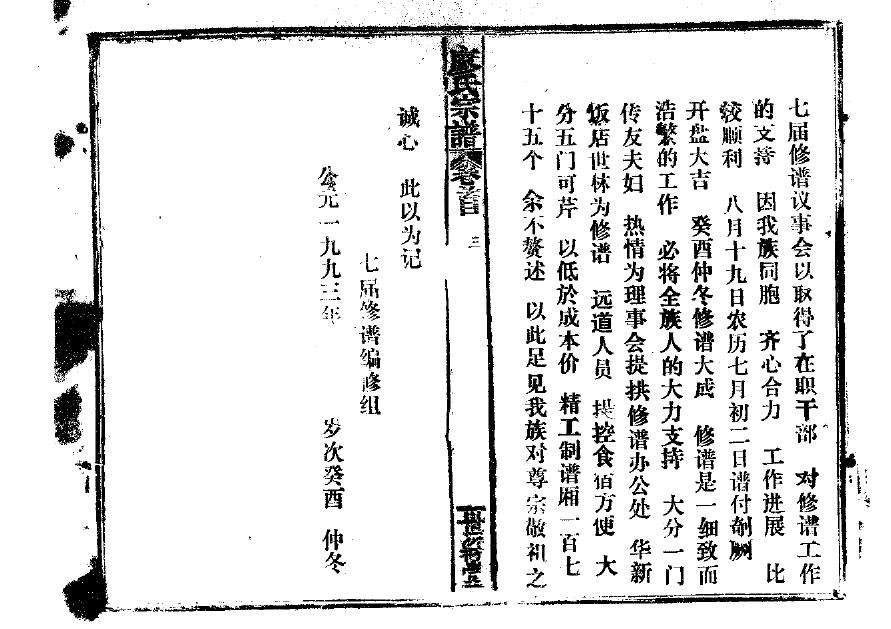 七届修谱议事会以取得了在职干部 对修谱工作
的支持 因我族同胞 齐心合力 工作进展 比
较顺利 八月十九日农历七月初二日谱付剞劂
开盘大吉 癸酉仲冬修谱大成 修谱是一细致而
浩繁的工作 必将全族人的大力支持 大分一门
传友夫妇 热情为理事会提拱修谱办公处 华新
饭店世林为修谱 远道人员 提控食宿方便 大
分五门可芹 以低於成本价 精工制谱厢一百七
十五个 余不赘述 以此足见我族对尊宗敬祖之
氏宗譜 卷之首 三
诚心 此以为记
七届修谱编修组
公元一九九三年 岁次癸酉 仲冬